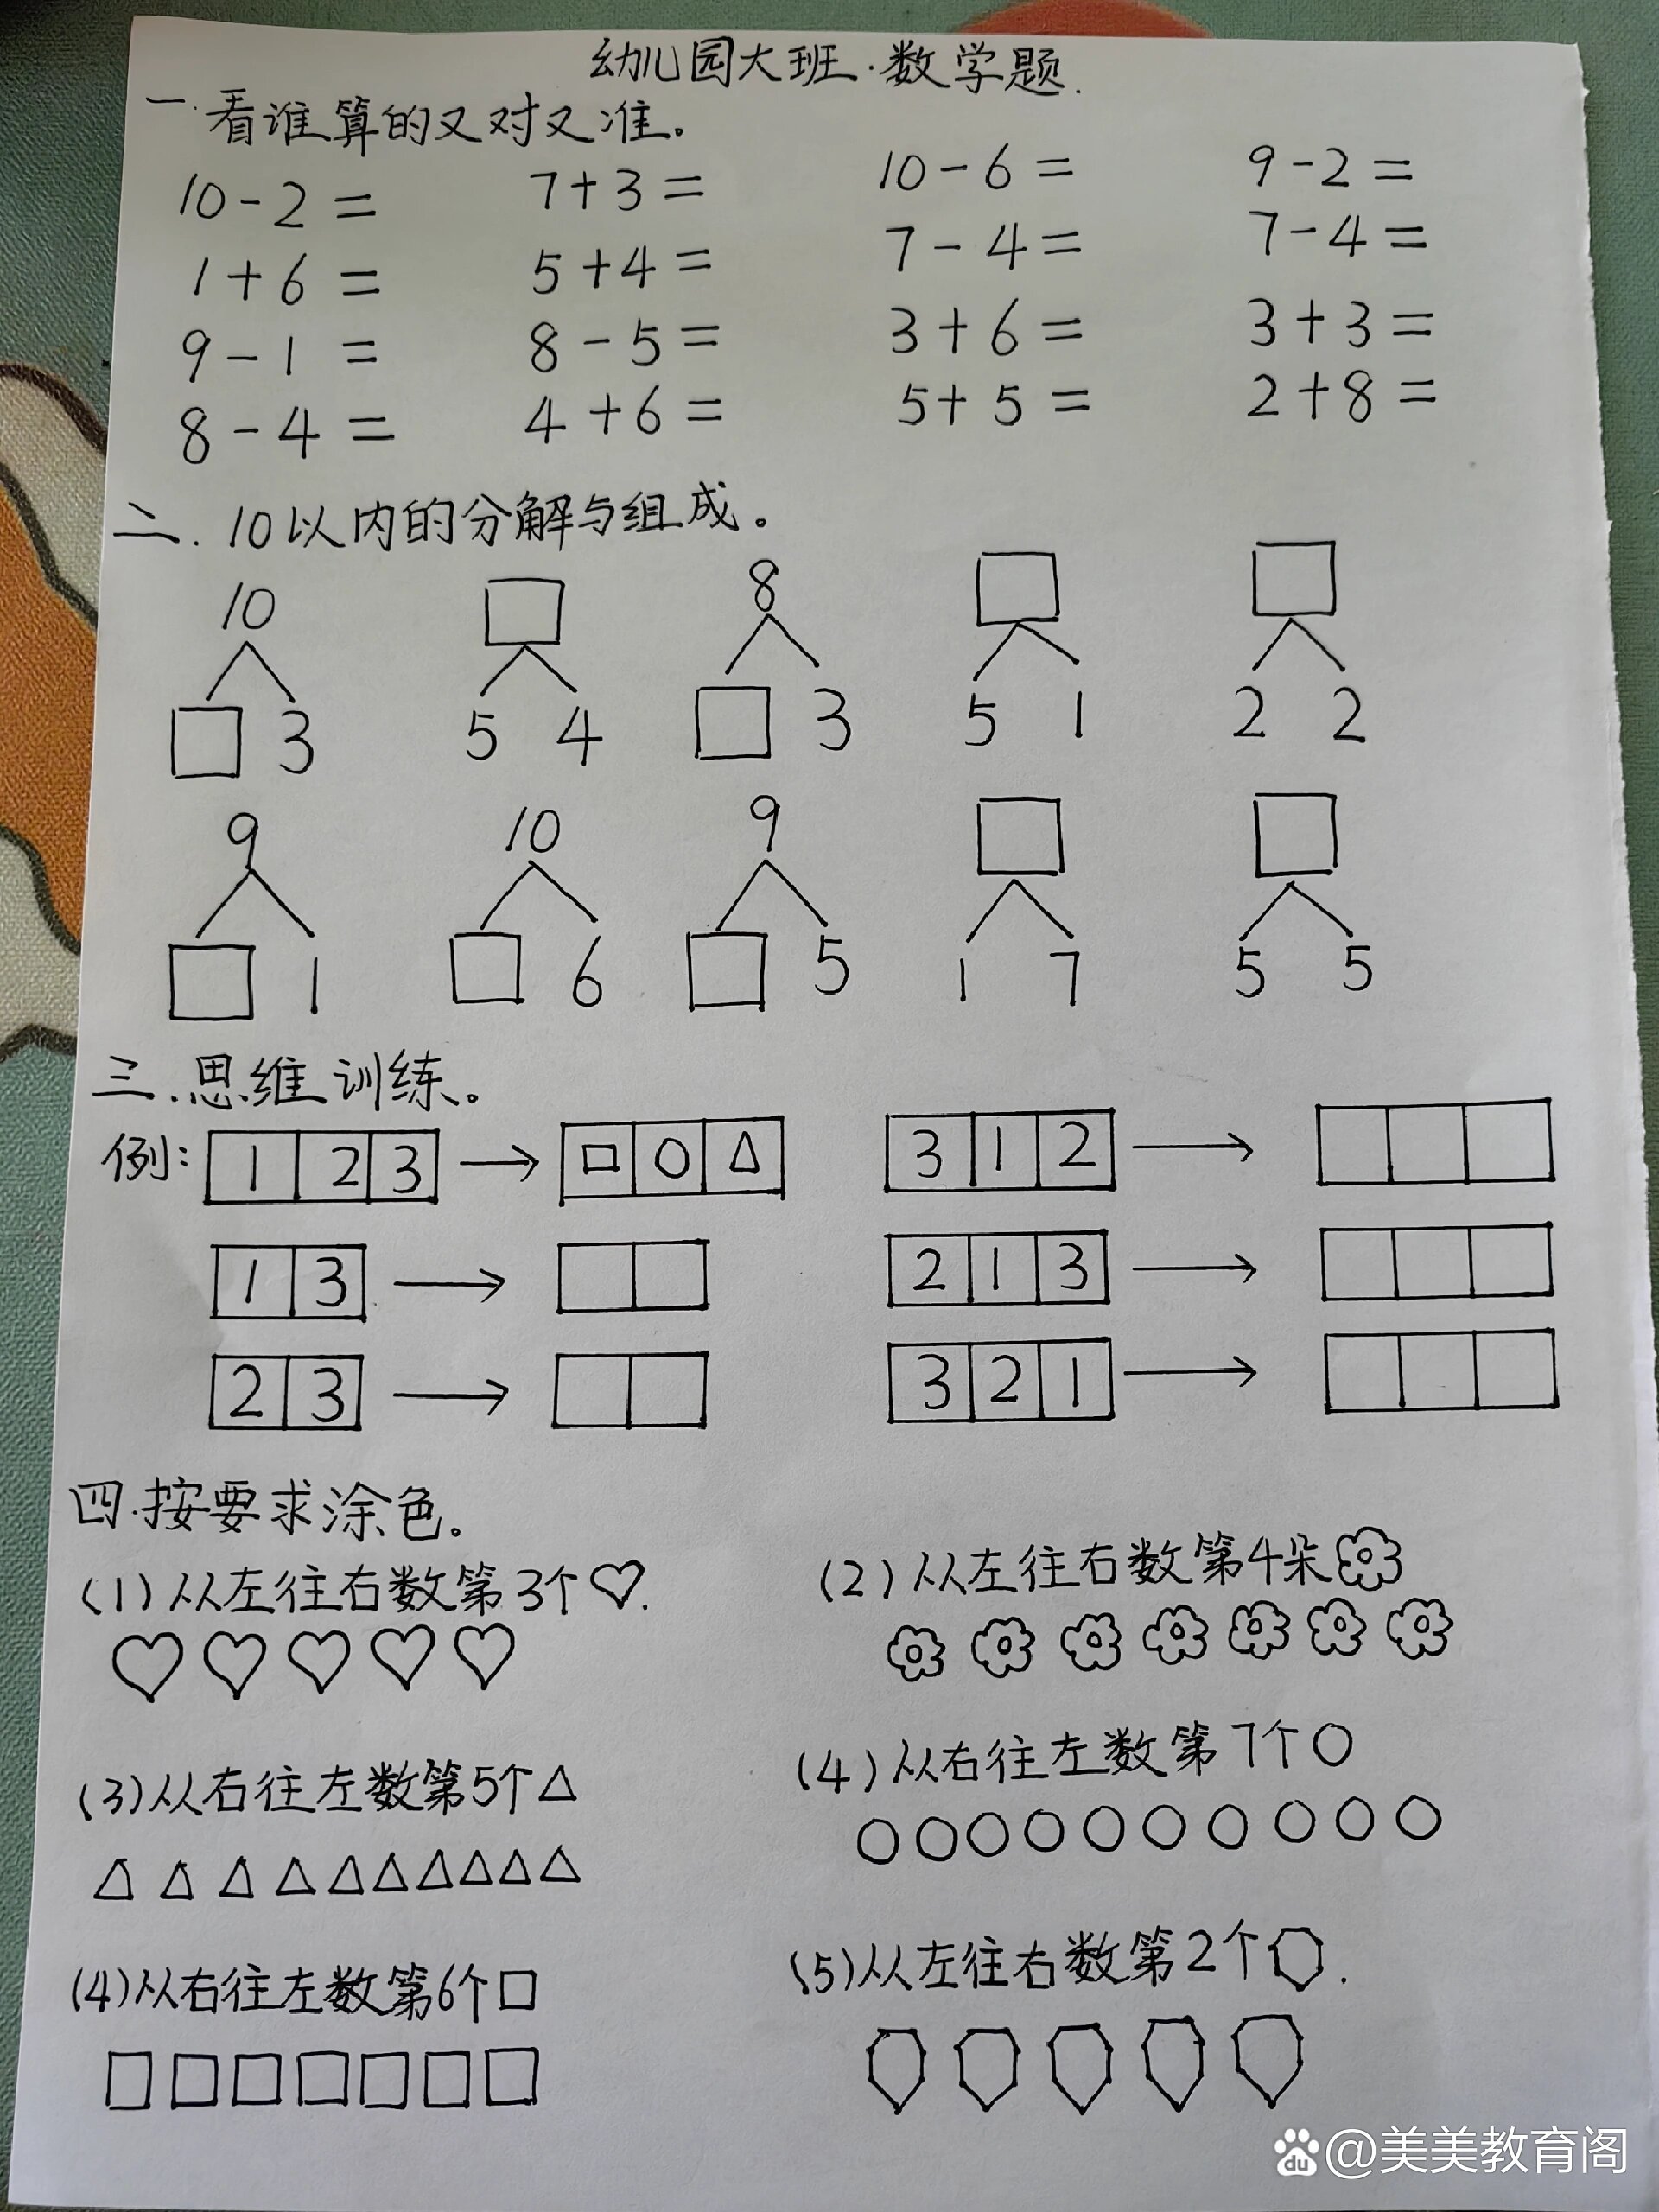 幼儿园大班.数学题.
一.看谁算的又对又准。
10-2= 7+3= 10-6= 9-2=
1+6= 5+4= 7-4= 7-4=
9-1= 8-5= 3+6= 3+3=
8-4= 4+6= 5+5= 2+8=
二.10以内的分解与组成。
10 □ 8 □ □
□ 3 5 4 □ 3 5 1 2 2
9 10 9 □ □
□ 1 □ 6 □ 5 1 7 5 5
三.思维训练。
例: 1 2 3 → □ ○ △ 3 1 2 →
1 3 → 2 1 3 →
2 3 → 3 2 1 →
四.按要求涂色。
(1)从左往右数第3个♡.
(2)从左往右数第4朵
(3)从右往左数第5个△
(4)从右往左数第7个○
(4)从右往左数第6个□
(5)从左往右数第2个⬡.
du @美美教育阁